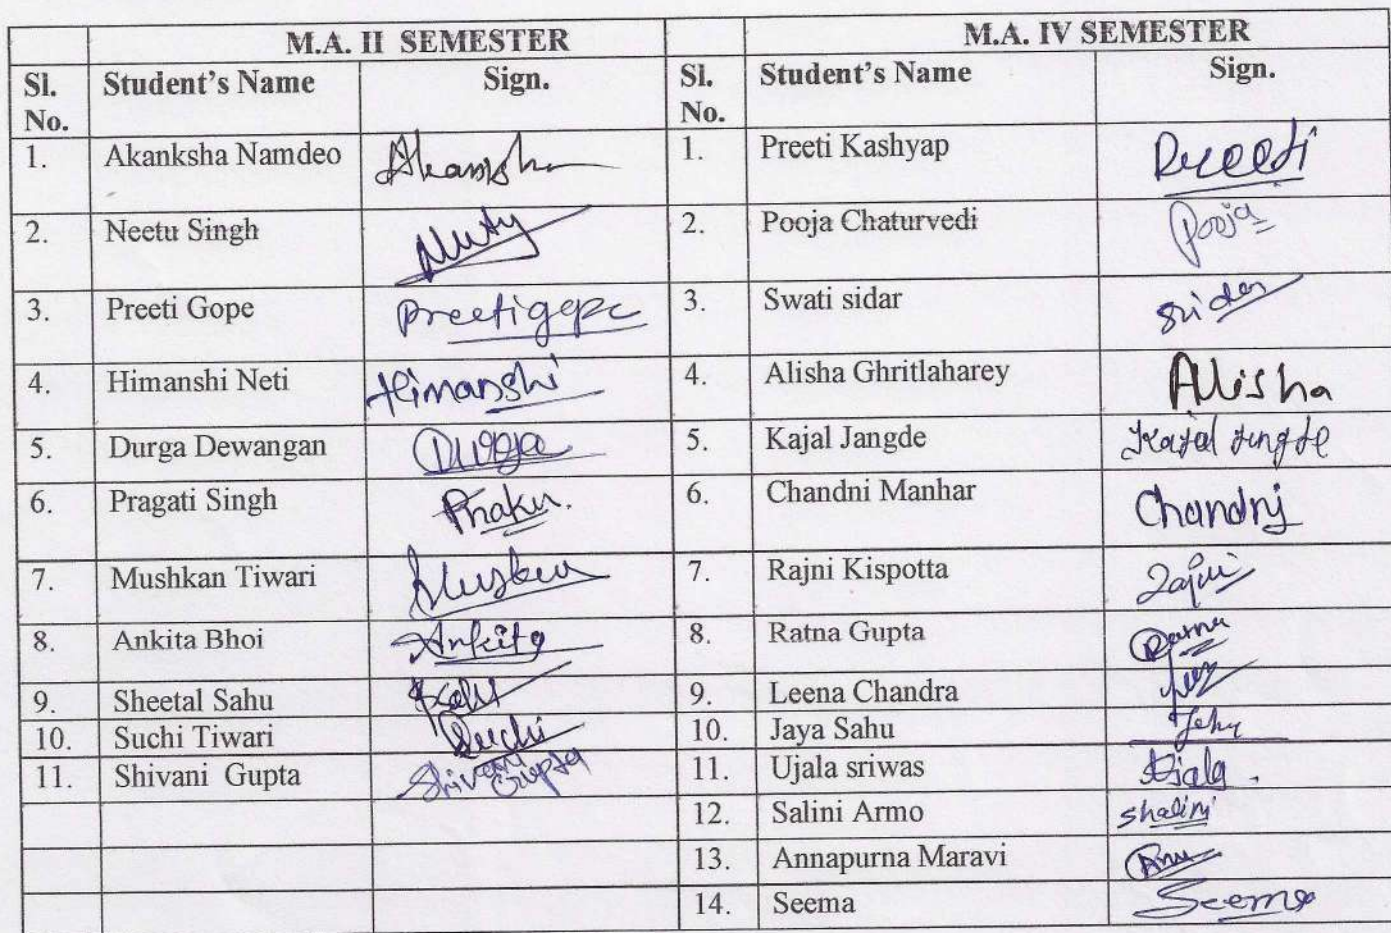 M.A. II SEMESTER M.A. IV SEMESTER
Sl. No. Student's Name Sign. Sl. No. Student's Name Sign.
1. Akanksha Namdeo Akanksha 1. Preeti Kashyap Preeti
2. Neetu Singh 2. Pooja Chaturvedi Pooja
3. Preeti Gope Preetigope 3. Swati sidar Sidar
4. Himanshi Neti Himanshi 4. Alisha Ghritlaharey Alisha
5. Durga Dewangan Durga 5. Kajal Jangde Kajal Jangde
6. Pragati Singh 6. Chandni Manhar Chandni
7. Mushkan Tiwari Muskan 7. Rajni Kispotta Rajni
8. Ankita Bhoi Ankita 8. Ratna Gupta Ratna
9. Sheetal Sahu 9. Leena Chandra
10. Suchi Tiwari Suchi 10. Jaya Sahu
11. Shivani Gupta Shivani Gupta 11. Ujala sriwas Ujala
12. Salini Armo Shalini
13. Annapurna Maravi Anu
14. Seema Seema